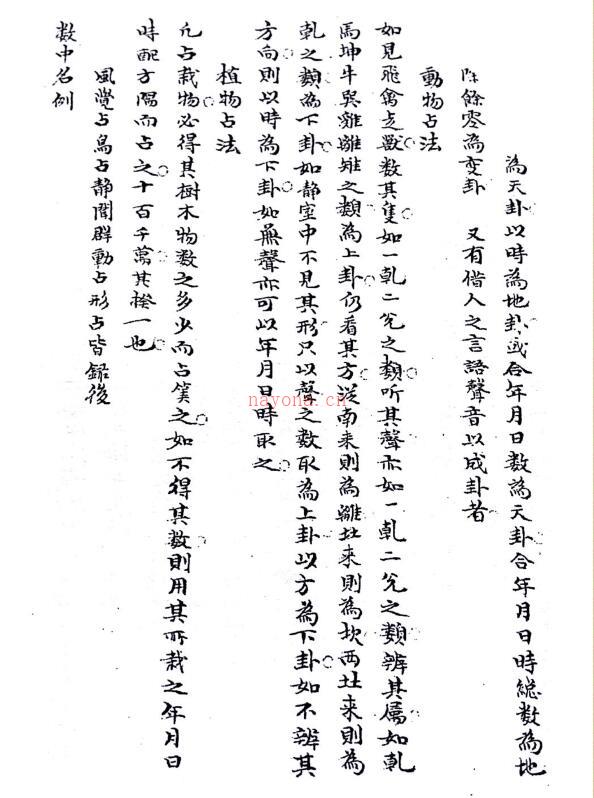 為天卦以時為地卦或合年月日数為天卦合年月日時縂数為地
除餘零為变卦 又有借人之言語聲音以成卦者
動物占法
如見飛禽走獸数其隻如一乹二兊之類听其聲亦如一乹二兊之類辨其属如乹
馬坤牛巽雞離雉之類為上卦仍看其方從南来則為離北来則為坎西北来則為
乹之類為下卦如静室中不見其形只以聲之数取為上卦以方為下卦如不辨其
方向則以時為下卦如無聲亦可以年月日時取之
植物占法
凢占栽物必得其樹木物数之多少而占筭之如不得其数則用其所栽之年月日
時配方隅而占之十百千萬其揆一也
風覺占鳥占静聞群動占形占皆録後
数中名例
nayona.cn